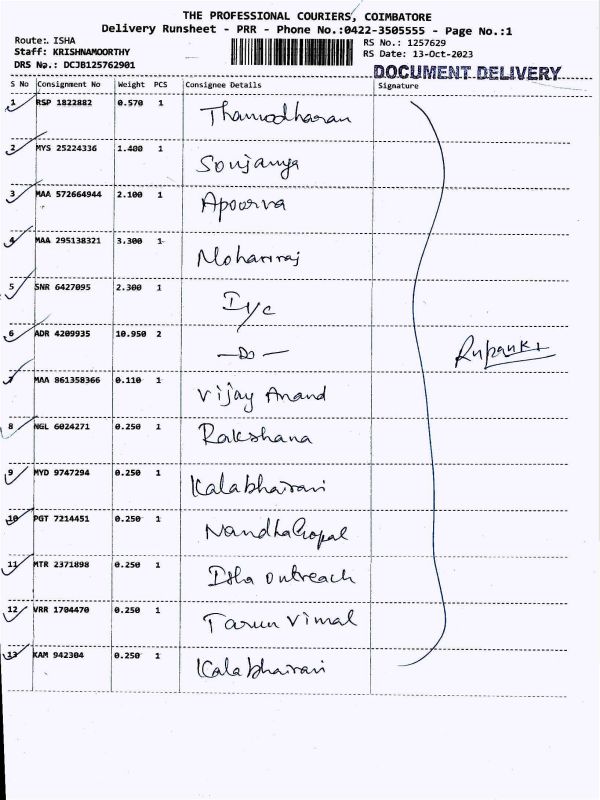 THE PROFESSIONAL COURIERS, COIMBATORE
Delivery Runsheet - PRR - Phone No.:0422-3505555 - Page No.:1
Route:. ISHA
RS No.: 1257629
Staff: KRISHNAMOORTHY
RS Date: 13-Oct-2023
DRS No.: DCJB125762901
DOCUMENT DELIVERY
S No Consignment No Weight PCS Consignee Details Signature
1 RSP 1822882 0.570 1 Thamodharan
2 MYS 25224336 1.400 1 Soujanya
3 MAA 572664944 2.100 1 Apoorva
4 MAA 295138321 3.300 1 Mohanraj
5 SNR 6427095 2.300 1 Iyc
6 ADR 4209935 10.950 2 —Do—
7 MAA 861358366 0.110 1 Vijay Anand
8 NGL 6024271 0.250 1 Rakshana
9 MYD 9747294 0.250 1 Kalabhairavi
10 PGT 7214451 0.250 1 NandhaGopal
11 MTR 2371898 0.250 1 Isha outreach
12 VRR 1704470 0.250 1 Tarun Vimal
13 KAM 942304 0.250 1 Kalabhairavi